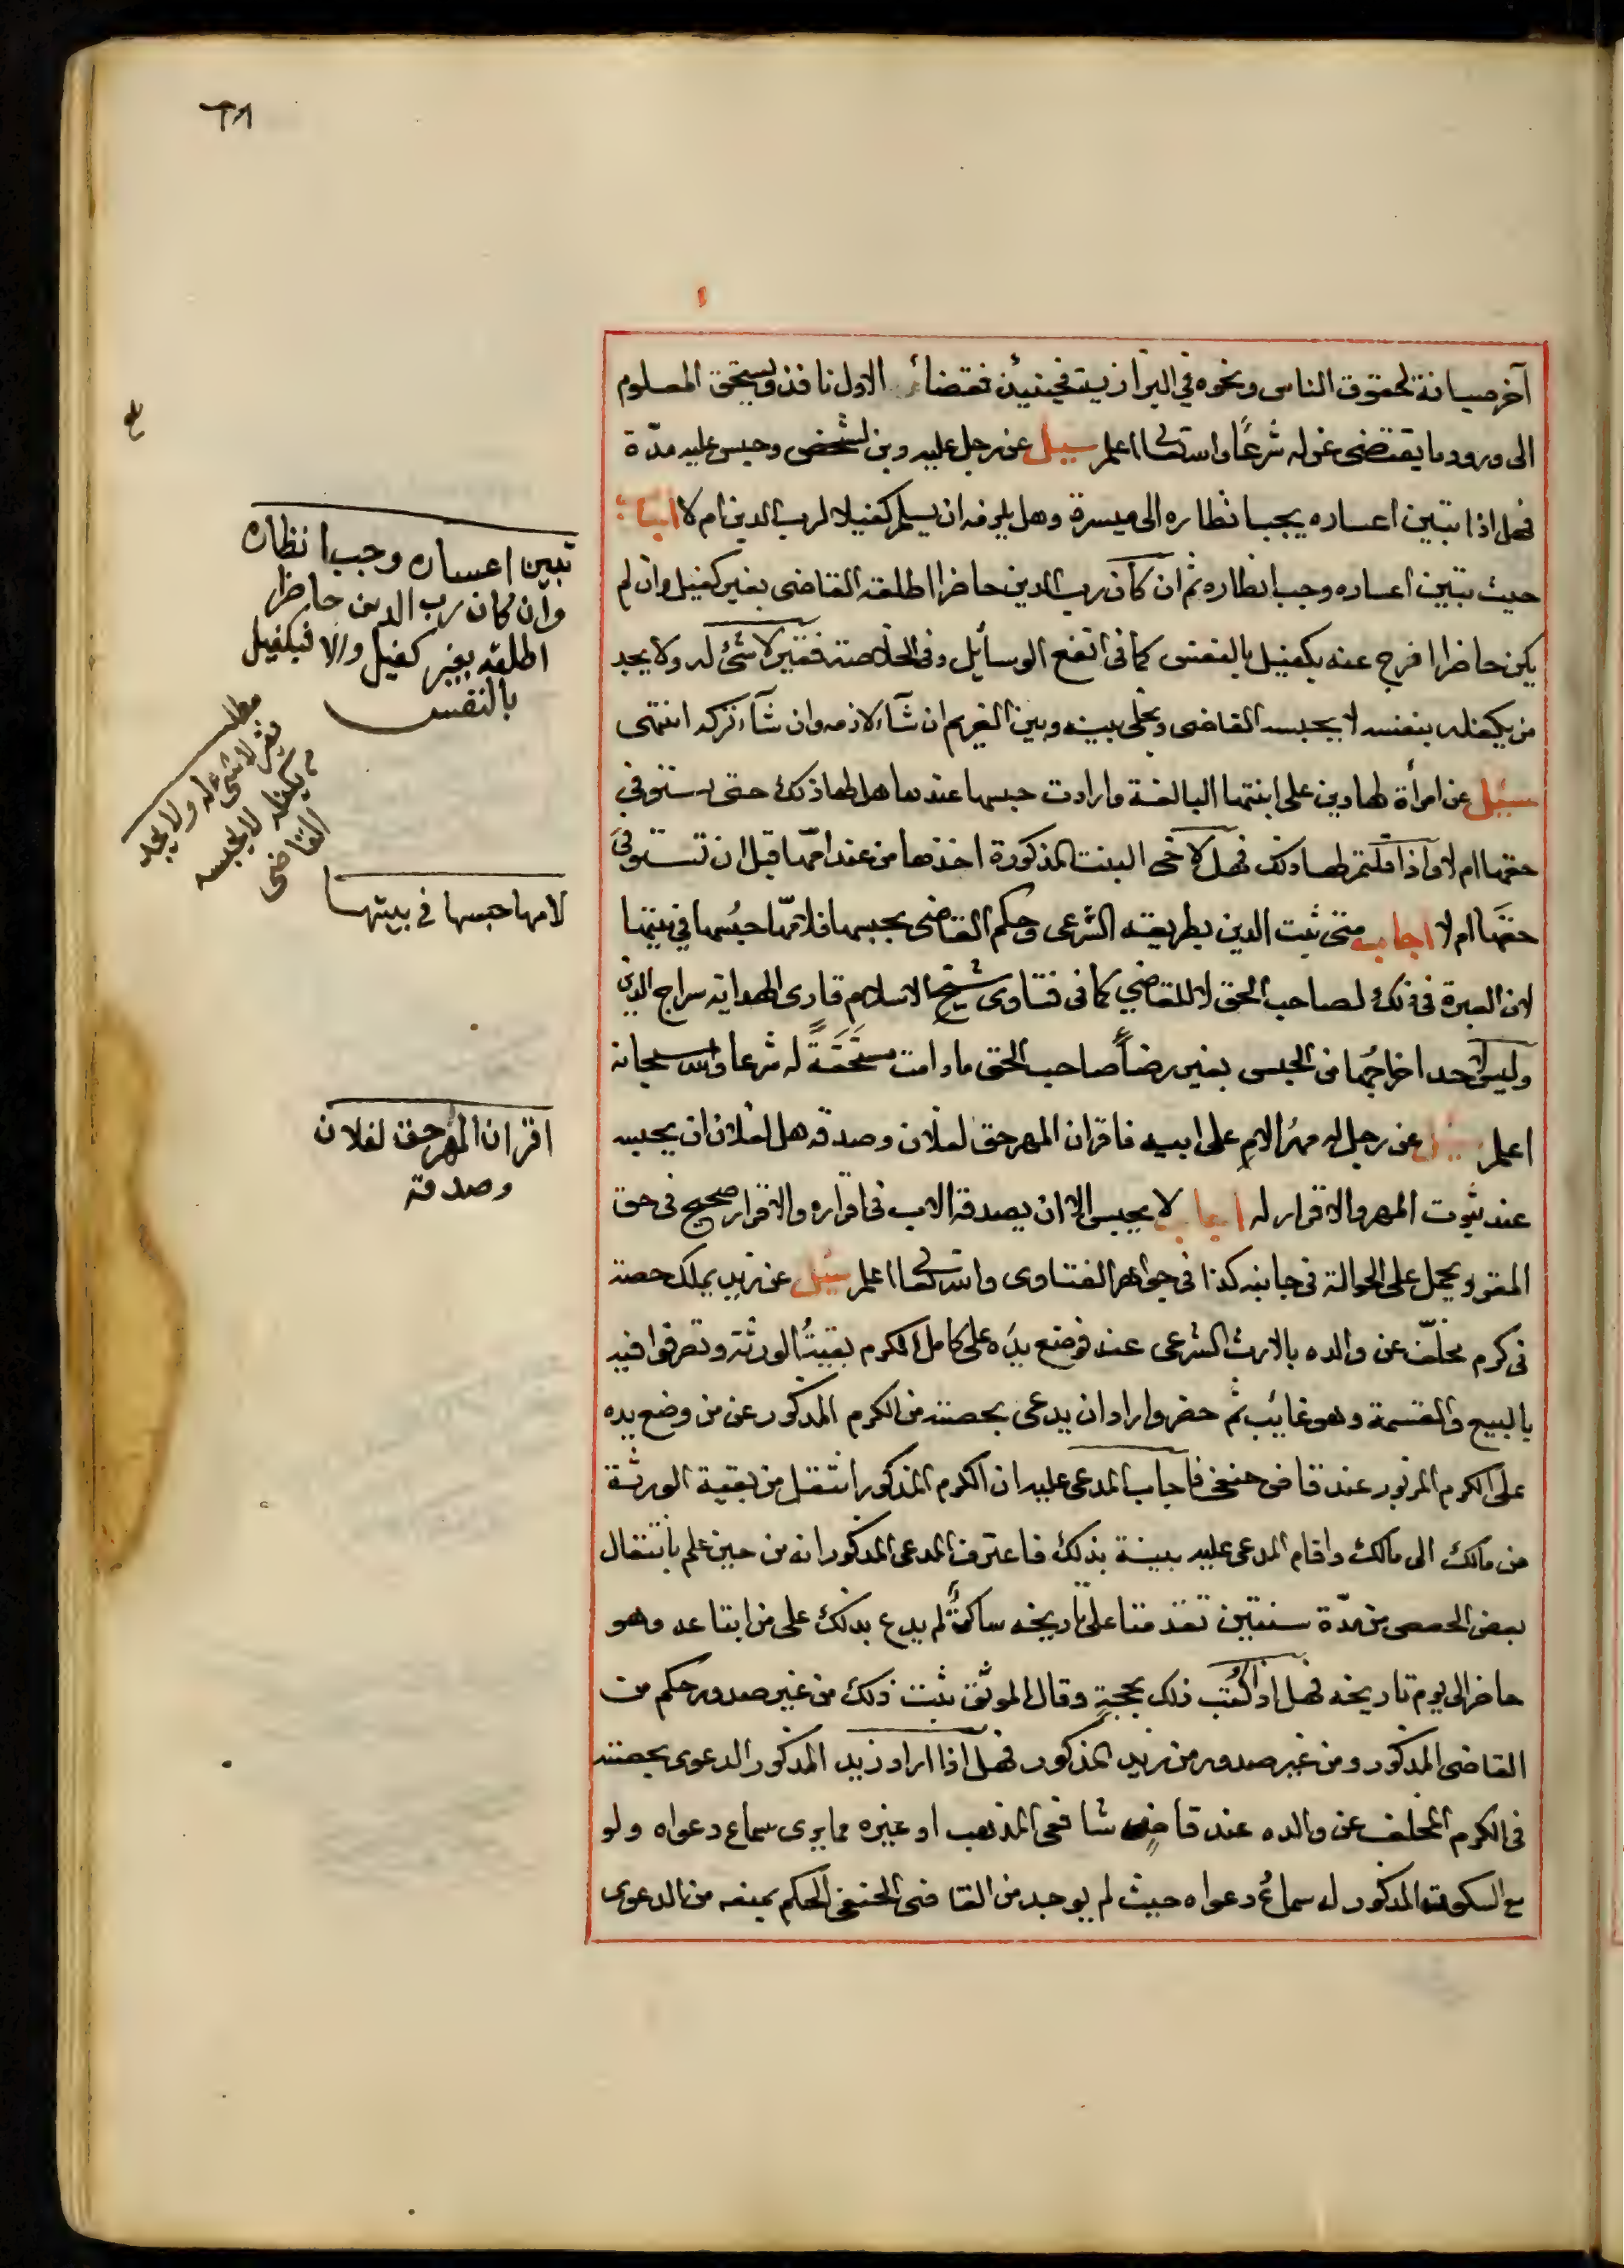 ٦٨
آخر صيانة لحقوق الناس ونحوه في البزازية فحينئذ فقضاء الاول نافذ ويستحق المعلوم
الى ورود ما يقتضى عزله شرعًا والله تعالى اعلم سيل عن رجل عليه دين لشخص وحبس عليه مدّة
فهل اذا تبين اعساره يجب انظاره الى ميسرة وهل يلزمه ان يسلم كفيلا لرب الدين ام لا اجاب
حيث تبين اعساره وجب انظاره ثم ان كان رب الدين حاضرا اطلقه القاضى بغير كفيل وان لم
يكن حاضرا افرج عنه بكفيل بالنفس كما فى انفع الوسائل وفى الخلاصة فقير لاشئ له ولا يجد
من يكفله بنفسه لا يحبسه القاضى ويخلى بينه وبين الغريم ان شآء لازمه وان شآء تركه انتهى
سئيل عن امرأة لها دين على ابنتها البالغة وارادت حبسها عندها هل لها ذلك حتى تستوفي
حقها ام لا واذا قلتم لها ذلك فهل لاخى البنت المذكورة اخذها من عند امّها قبل ان تستوفىَ
حقها ام لا اجاب متى ثبت الدين بطريقه الشرعى وحكم القاضى بحبسها فلامّها حبسُها في بيتها
لان العبرة فى ذلك لصاحب الحق لا للقاضي كما فى فتاوى شيخ الاسلام قارى الهداية سراج الدين
وليس لاحد اخراجُها من الحبس بغير رضاً صاحب الحق ما دامت مستحقةً له شرعا والله سبحانه
اعلم سئيل عن رجل له مهرُ الامِ على ابيه فاقر ان المهر حق لفلان وصدقه هل لفلان ان يحبسه
عند ثبوت المهر والاقرار له اجاب لا يحبس الا ان يصدقه الاب فى اقراره والاقرار صحيح فى حق
المقر ويحمل على الحوالة فى جانبه كذا فى جواهر الفتاوى والله تعالى اعلم سئيل عن زيد يملك حصة
فى كرم مخلّف عن والده بالارث الشرعى عنه فوضع يدَه على كامل الكرم بقيتُ الورثة وتصرفوا فيه
بالبيع والقسمة وهو غايب ثم حضر واراد ان يدعى بحصته من الكرم المذكور عن من وضع يده
على الكرم المزبور عند قاضى حنفى فاجاب المدعى عليه ان الكرم المذكور انتقل من بقية الورثة
من مالك الى مالك واقام المدعى عليه بينة بذلك فاعترف المدعى المذكور انه من حين علم بانتقال
بعض الحصص من مدّة سنتين تقدمتا على تاريخه ساكتٌ لم يدع بذلك على من ابتاعه وهو
حاضر الى يوم تاريخه فهل اذا كُتب ذلك بحجةٍ وقال الموثّق ثبت ذلك من غير صدور حكم من
القاضى المذكور ومن غير صدور من زيد المذكور فهل اذا اراد زيد المذكور الدعوى بحصته
فى الكرم المخلف عن والده عند قاضٍ شافعى المذهب او غيره مما يرى سماع دعواه ولو
مع السكوت المذكور له سماعُ دعواه حيث لم يوجد من القاضى الحنفى الحكم بمنعه من الدعوى
تبين اعساره وجب انظاره
وان كان رب الدين حاضرا
اطلقه بغير كفيل والا فبكفيل
بالنفس
مطلب
فقير لاشئ له ولا يجد
م يكفله لا يحبسه
القاضى
لامها حبسها فى بيتها
اقر ان المهر حق لفلان
وصدقه